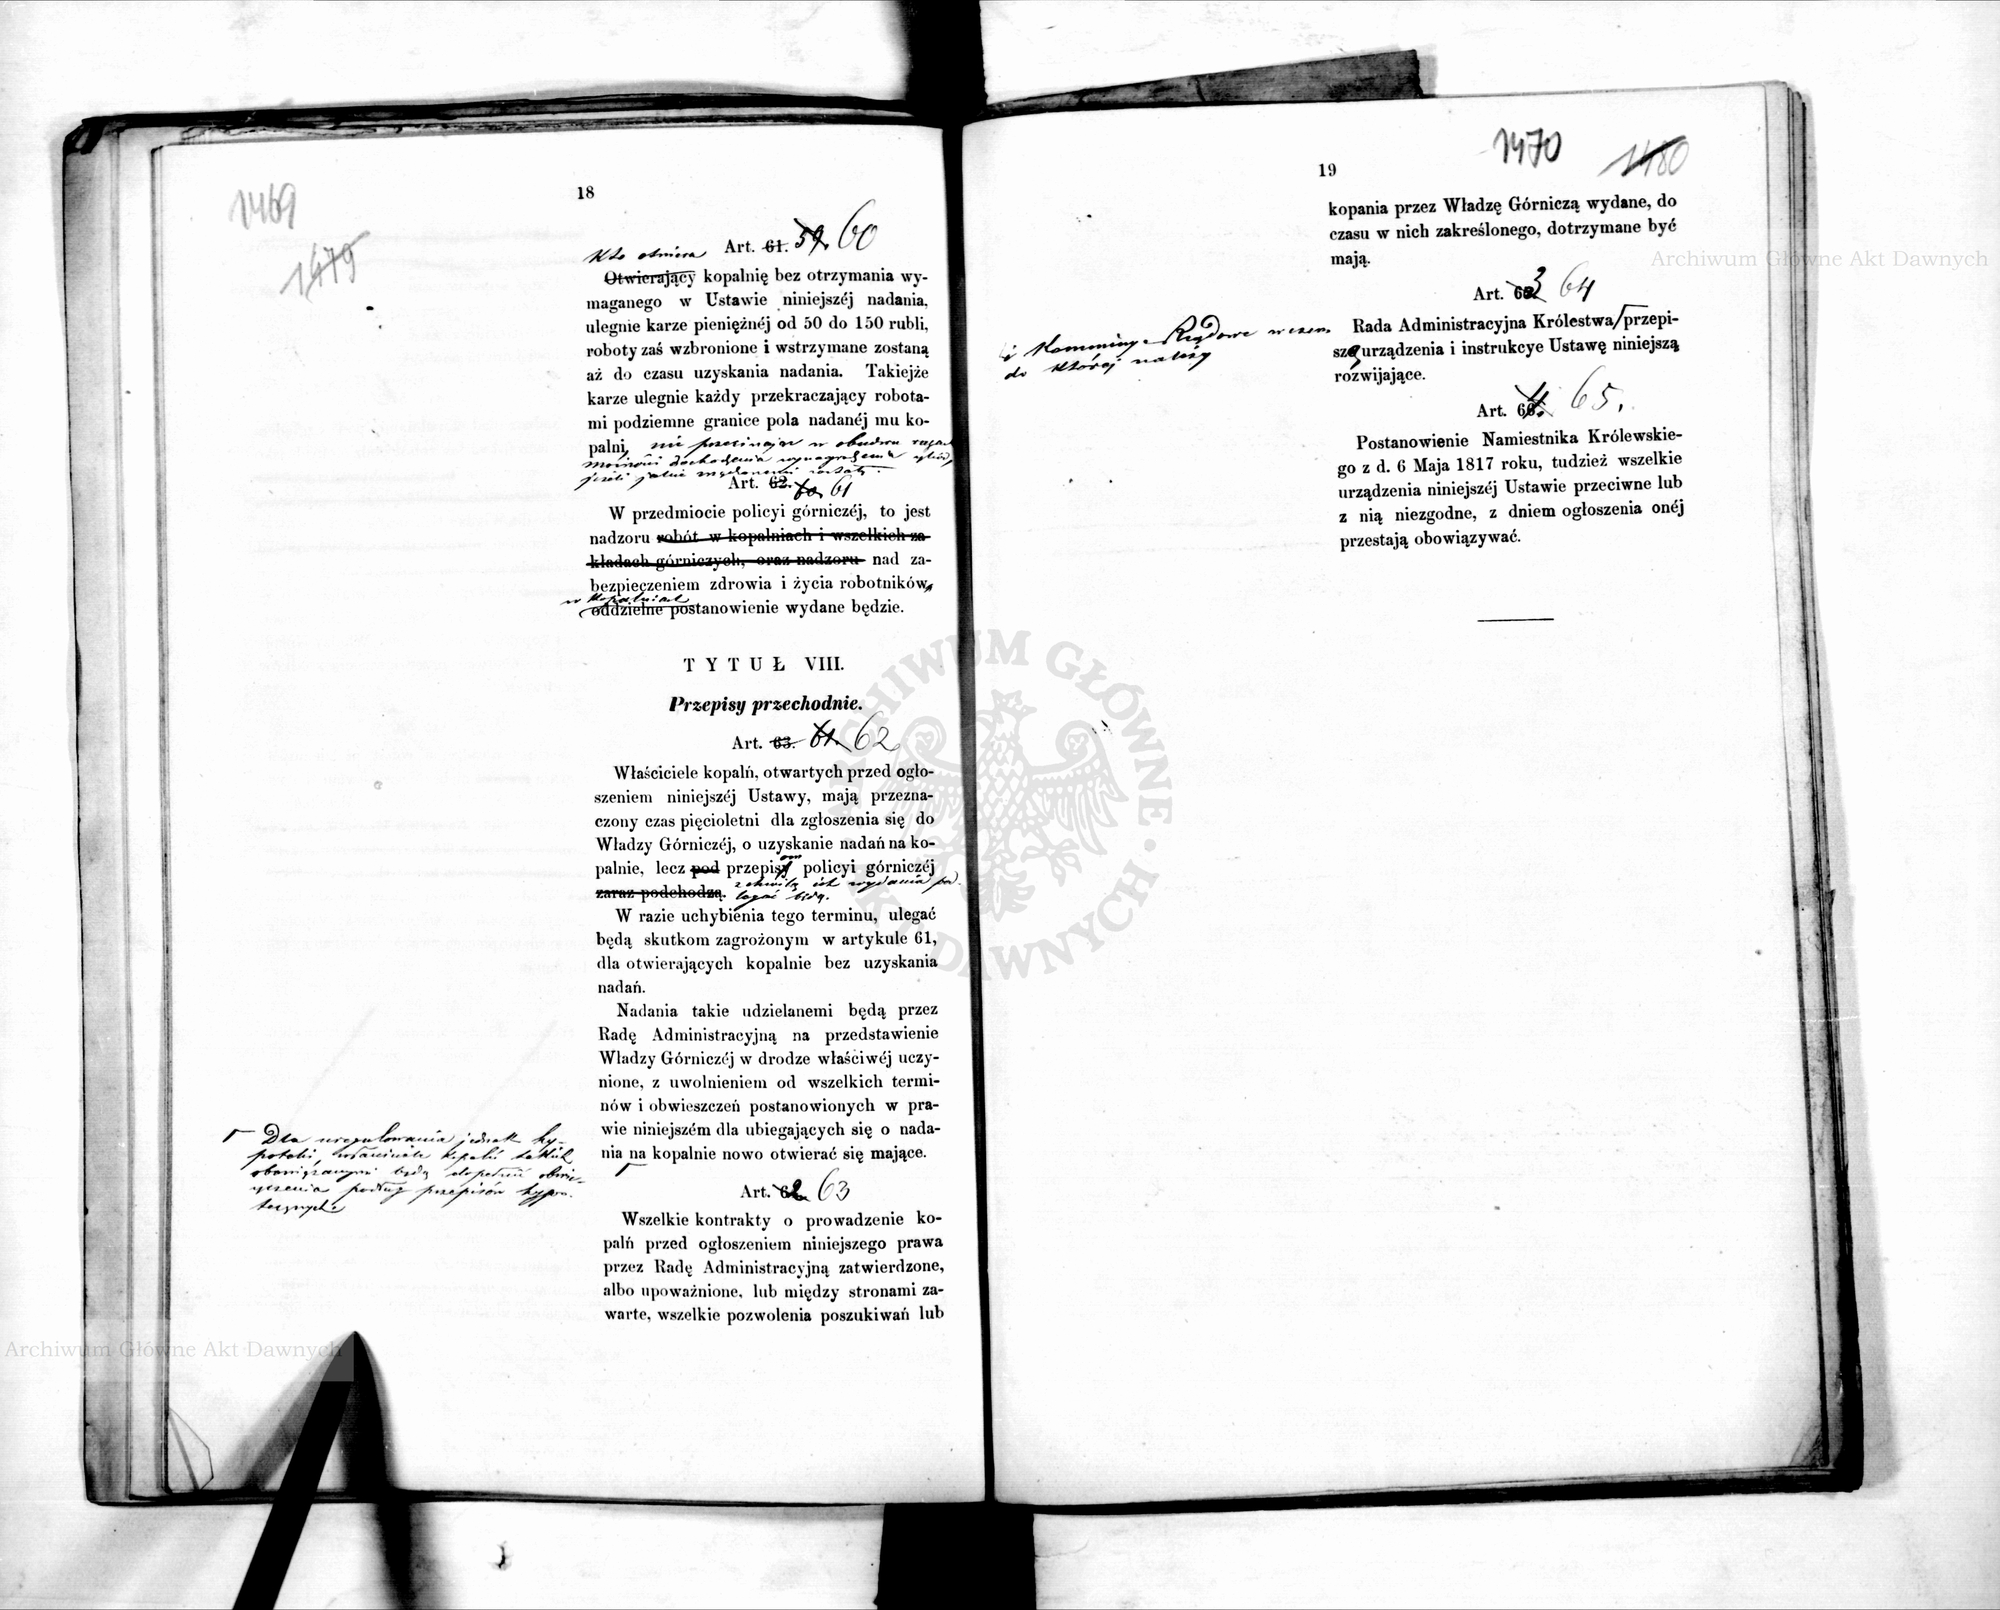 1469
1479
18
Art. 61. 59. 60
Kto otwiera
Otwierający kopalnię bez otrzymania wy-
maganego w Ustawie niniejszéj nadania,
ulegnie karze pieniężnéj od 50 do 150 rubli,
roboty zaś wzbronione i wstrzymane zostaną
aż do czasu uzyskania nadania. Takiejże
karze ulegnie każdy przekraczający robota-
mi podziemne granice pola nadanéj mu ko-
palni, nie przecinając w obudwu razach
możności dochodzenia wynagrodzenia
jeżeli jakie
Art. 62. 60. 61
W przedmiocie policyi górniczéj, to jest
nadzoru robót w kopalniach i wszelkich za-
kładach górniczych, oraz nadzoru nad za-
bezpieczeniem zdrowia i życia robotników,
w kopalniach
oddzielne postanowienie wydane będzie.
TYTUŁ VIII.
Przepisy przechodnie.
Art. 63. 61. 62
Właściciele kopalń, otwartych przed ogło-
szeniem niniejszéj Ustawy, mają przezna-
czony czas pięcioletni dla zgłoszenia się do
Władzy Górniczéj, o uzyskanie nadań na ko-
palnie, lecz pod przepisy om policyi górniczéj
zaraz podchodzą. z chwilą ich wydania po-
legać będą.
W razie uchybienia tego terminu, ulegać
będą skutkom zagrożonym w artykule 61,
dla otwierających kopalnie bez uzyskania
nadań.
Nadania takie udzielanemi będą przez
Radę Administracyjną na przedstawienie
Władzy Górniczéj w drodze właściwéj uczy-
nione, z uwolnieniem od wszelkich termi-
nów i obwieszczeń postanowionych w pra-
wie niniejszém dla ubiegających się o nada-
nia na kopalnie nowo otwierać się mające.
Dla uregulowania jednak hy-
poteki, właściciele kopalń takich
obowiązanymi będą dopełnić obwie-
szczenia podług przepisów hypo-
tecznych
Art. 62 63
Wszelkie kontrakty o prowadzenie ko-
palń przed ogłoszeniem niniejszego prawa
przez Radę Administracyjną zatwierdzone,
albo upoważnione, lub między stronami za-
warte, wszelkie pozwolenia poszukiwań lub
1470 1480
19
kopania przez Władzę Górniczą wydane, do
czasu w nich zakreślonego, dotrzymane być
mają.
Art. 3 64
i Kommissye Rządowe w czem
do któréj należy
Rada Administracyjna Królestwa przepi-
szą urządzenia i instrukcye Ustawę niniejszą
rozwijające.
Art. 4. 65.
Postanowienie Namiestnika Królewskie-
go z d. 6 Maja 1817 roku, tudzież wszelkie
urządzenia niniejszéj Ustawie przeciwne lub
z nią niezgodne, z dniem ogłoszenia onéj
przestają obowiązywać.
Archiwum Główne Akt Dawnych
Archiwum Główne Akt Dawnych
ARCHIWUM GŁÓWNE AKT DAWNYCH